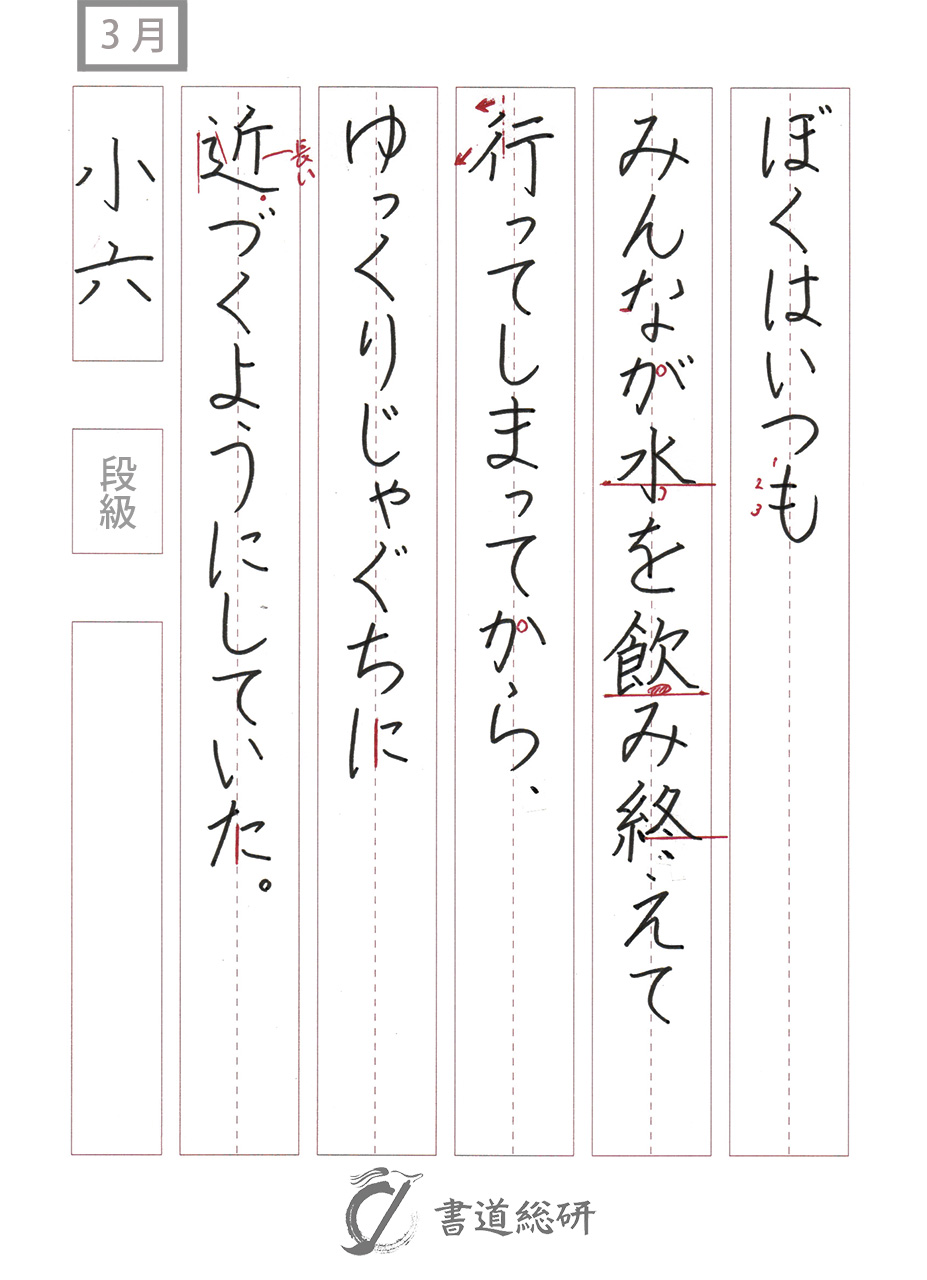 3月
ぼくはいつも
1
2
3
みんなが水を飲み終えて
行ってしまってから、
ゆっくりじゃぐちに
近づくようにしていた。
長い
小六
段級
書道総研